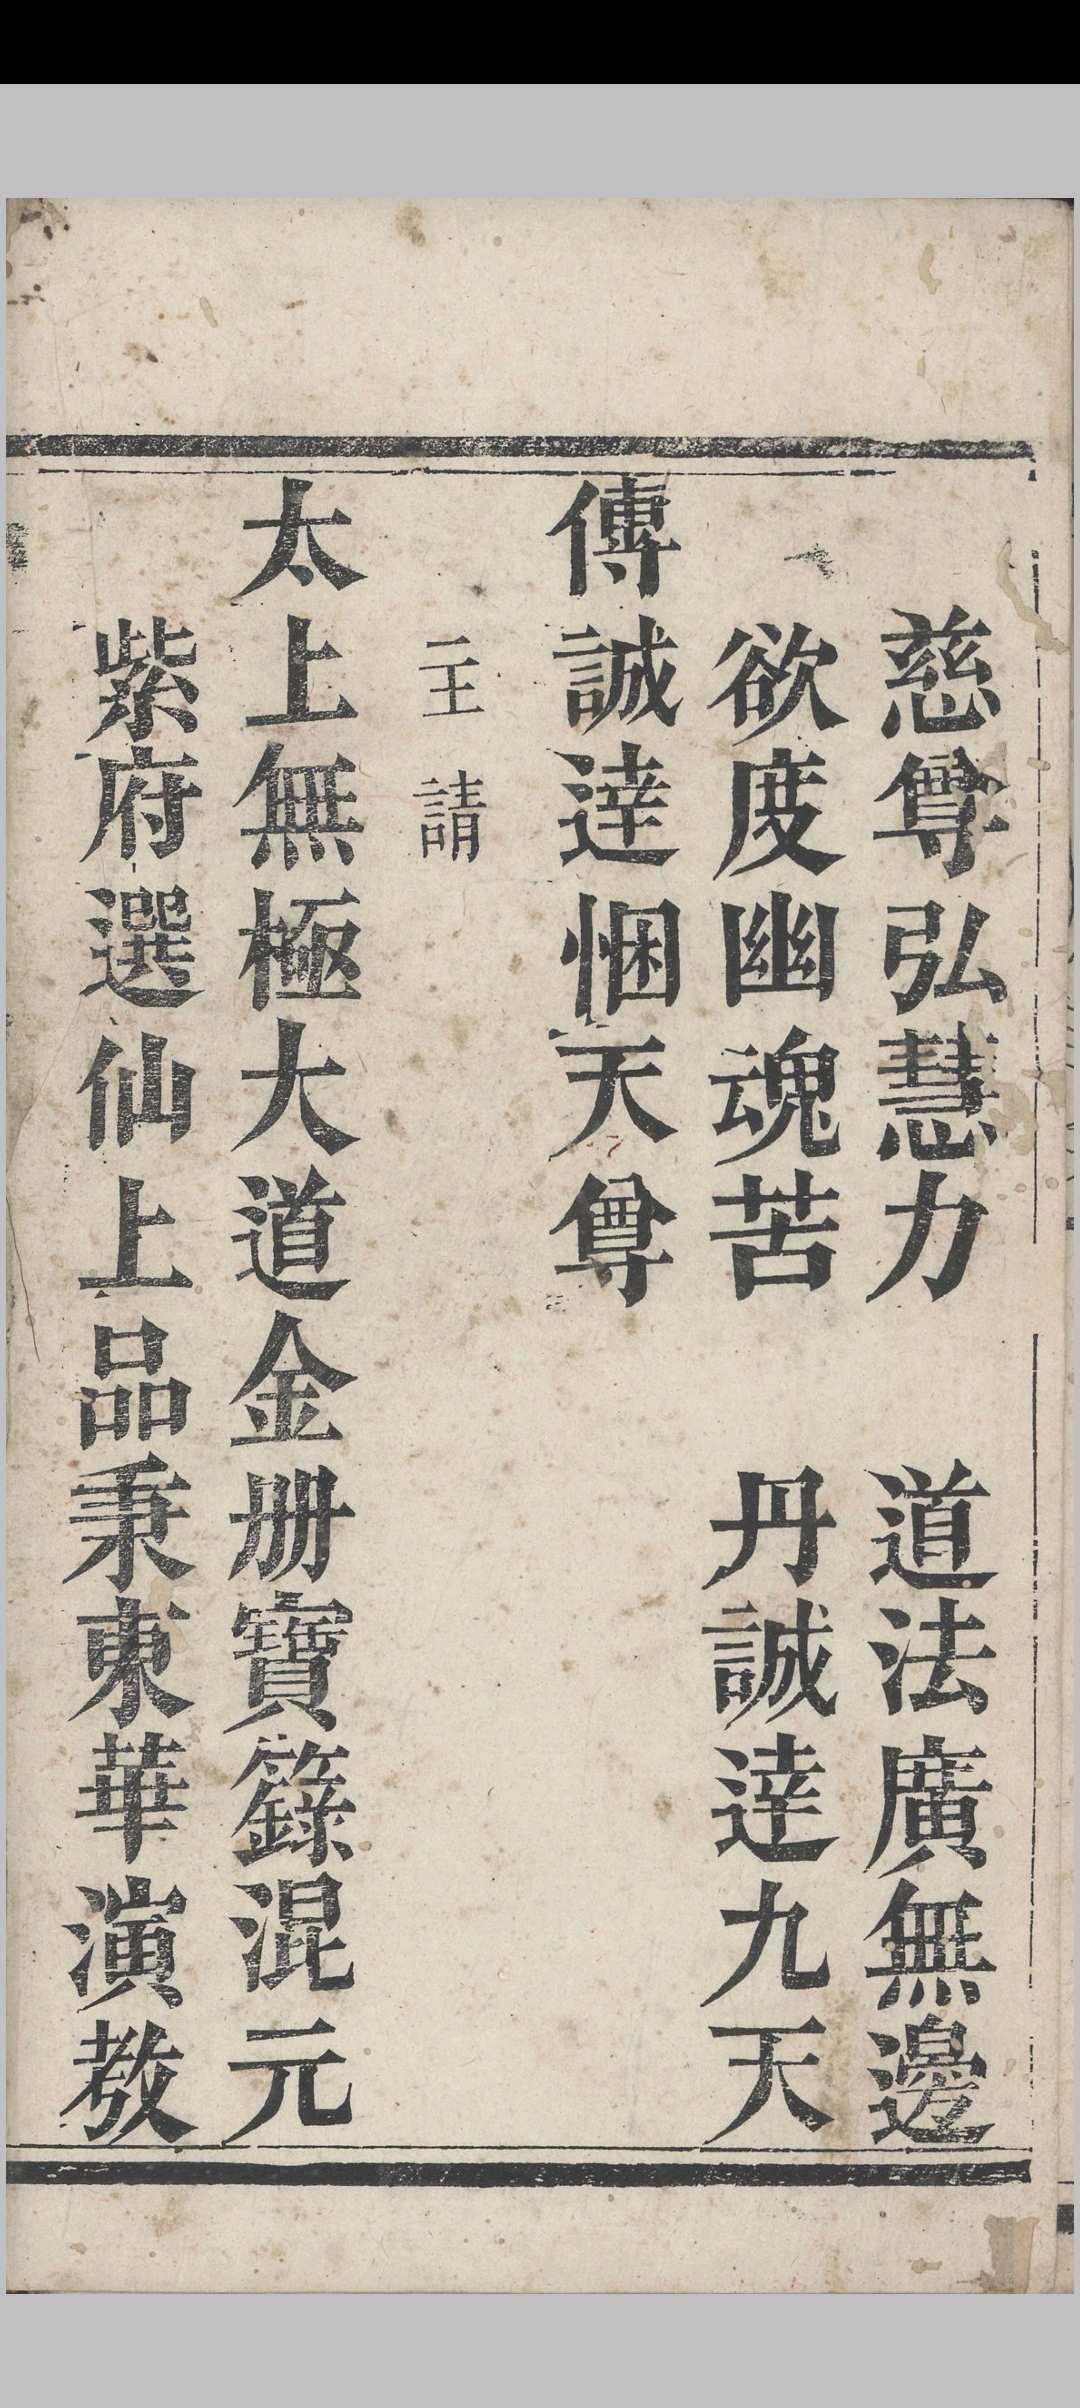 慈尊弘慧力　道法廣無邊
欲度幽魂苦　丹誠達九天
傳誠達悃天尊
主請
太上無極大道金册寶籙混元
紫府選仙上品秉東華演教